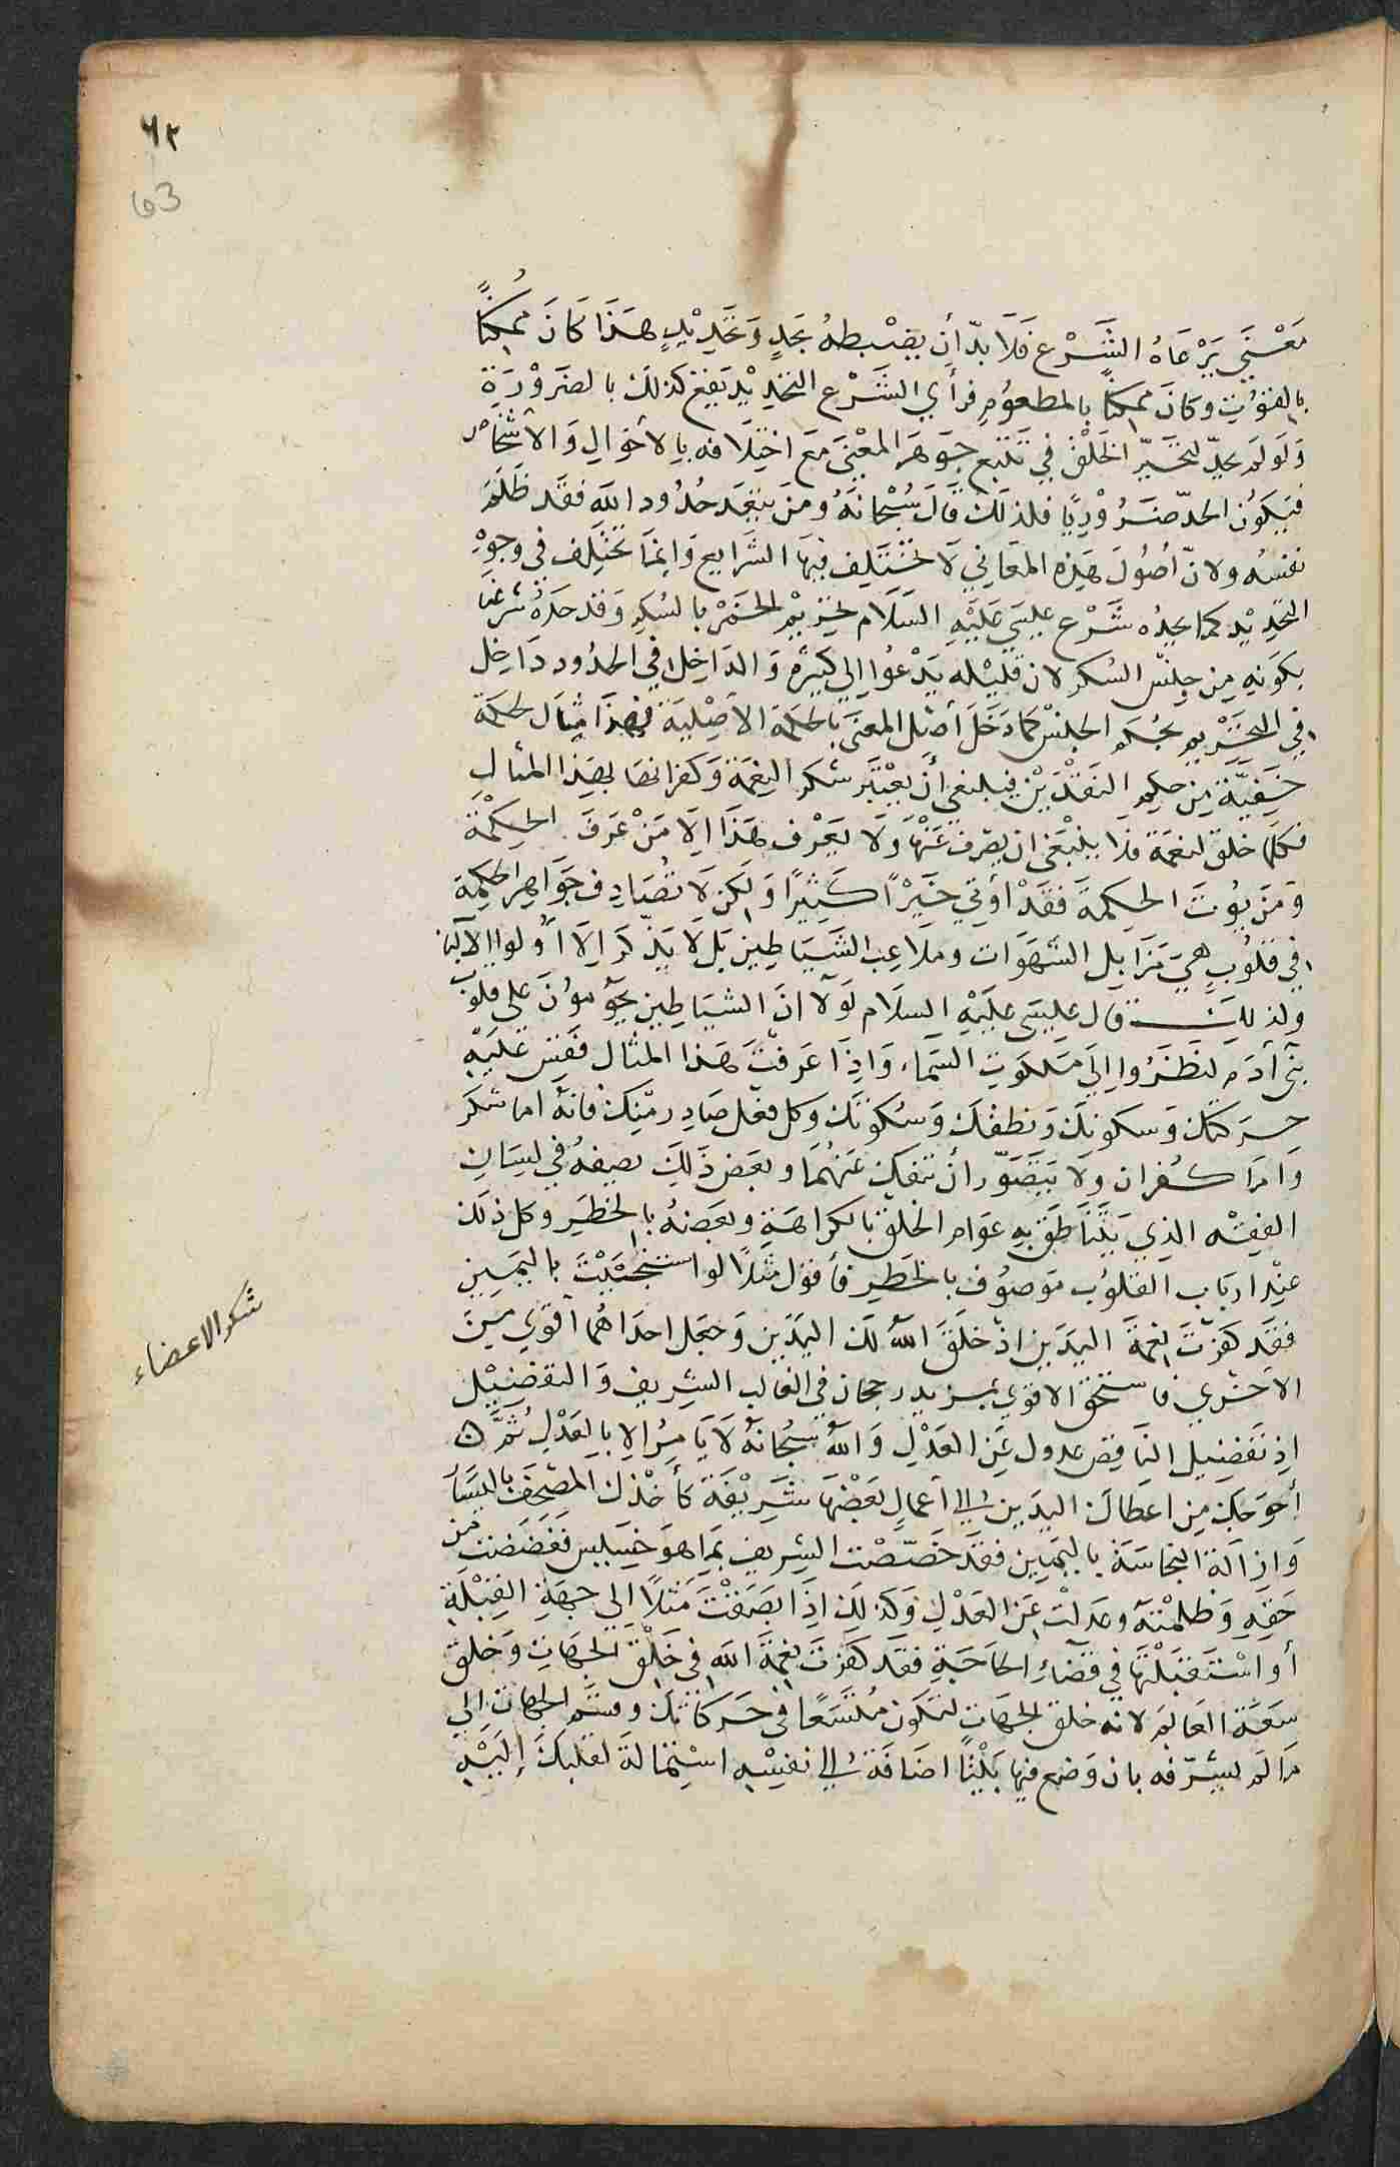 ٦٢
63
مَعْنَي يَرْعَاهُ الشَّرْع فَلاَ بدّ أن يضْبطهُ بحَدٍ وَتحَدِيْدٍ هَذَا كَانَ ممكِنًا
بالقوْتِ وكانَ ممكنًا بالمطعوُمِ فرأي الشَّرْع التحْدِيْد يَقِع كذلكَ بالضَروْرَةِ
وَلَو لَم يحدّ لتحَيّر الخَلْقُ فِي تتَبّع جَوهَر المعْنَى مَعَ اختِلاَفه بِالأحَوالِ وَالأشخاْ
فيَكوُن الحدّ ضَرُوْرِيًا فلذلكَ قَالَ سُبْحانَهُ وَمَن يتعَد حدُود اللهِ فقَد ظَلَمَ
نفسُه ولانّ أصُولَ هَذِهِ المعَاني لاَ تختَلِف فيهَا الشرَايع وَانمَا تختَلِف في وجوِْ
التحدِيْد كما يحدُه شَرْع عيسَي عَليْهِ السَلاَم تحْريْم الخمْر بالسُكرِ وَقد حدّهُ شرعُنا
بكونِهِ مِن جنسْ المسكر لان قليْله يَدْعُوا إلي كثيرهُ وَالدَاخِل في الحدُود دَاخِل
في التحْريم بحُكم الجنسْ كمَا دَخَلَ أصْل المعنَى بالحكمة الأصْليَة فهذَا مثال لحكمَة
خَفيَّة مِن حكمِ النقدَيْن فينبغي أن يعْتَبر شكر النِعْمَة وكفرانهَا بهَذا المثالِ
فكلما خلق لنعْمَة فلا ينبغى ان يصرف عَنْهَا وَلاَ يَعْرف هَذَا إلاَ مَنْ عَرَفَ الحِكْمَة
وَمَن يوُتَ الحِكمَةَ فقَدْ أوُتي خَيْرًا كَثِيرًا وَلكن لاَ تُصَادِف جَوَاهِر الحِكمَةِ
في قلُوبٍ هِيَ مَزَابل الشهَوَات وملاَعِب الشيَاطِين بَل لاَ يَذّكرَ الاَ أولوا الألبَا
ولذلكَ قال عيسَى عليْهِ السلاَم لوَلاَ انَ الشيَاطِين يحوُموُنَ علي قلوبِ
بني آدَمَ لنظَروُا إِلَي مَلكوُتِ السَّمَاء وَاذِا عَرفتَ هَذا المثال فقِس عَليْهِ
حركتك وَسكونكَ وَنطقكَ وَسُكوُتكَ وكل فعْل صَادِر منكَ فانهُ اما شكرَ
وَامَا كُفران ولاَ يتَصَوّر أن تنفك عَنهُمَا وبعَض ذلكَ نصِفهُ في لسَانِ
الفِقْه الذِي يتَناطق بهِ عوَام الخلق بالكراهَةِ وبعضهُ بالحظَر وكل ذلكَ
عنْد اربَاب القلوُب مَوصوُف بالحظَر فأقول مثلاً لو استنجَيْتَ باليَمينِ
فقَد كفرْتَ نعمَة اليدَين اذ خلقَ اللهُ لكَ اليدَين وَجعَل احدَاهُما أقوَي مِنَ
الأخْرَي فاستحقّ الاقوَي بمزيد رجحان في الغالب الشريف وَالتفضيْل
اذ تفضِيل الناقِص عدول عَن العَدْل وَاللهُ سُبحانهُ لاَ يَامرُ إلا بالعَدْل ثُمَّ
أحوَجكَ مَن اعطاكَ اليدَين إلي اعمالٍ بَعضْهَا شريْفَة كأخْذكَ المصْحَف باليسَار
وَازالة النجاسَة باليَمين فقَد خصّصْت الشريف بمَا هوَ خسِيس فغَضَضت مِن
حَقِهِ وَظلمْتهُ وعدَلْت عَن العَدْلِ وَكذلكَ اذَا بصَقتَ مَثلاً إلى جهَةِ القِبْلَةِ
أو اسْتقبَلْتهَا في قضَآءِ الحاجَةِ فقَد كفَرتَ نعِمَةَ اللهِ في خَلْق الجهَاتِ وَخلقِ
سَعَة العَالمَ لانه خلق الجهَات لتَكون مُتسَعًا في حَركاتكَ وقسّم الجهات إلي
مَا لَم يشرّفه بان وَضع فيها بَيْتًا اضافَهُ إلي نفسِه استِمالةً لقلبكَ إليْهِ
شكر الاعضاء